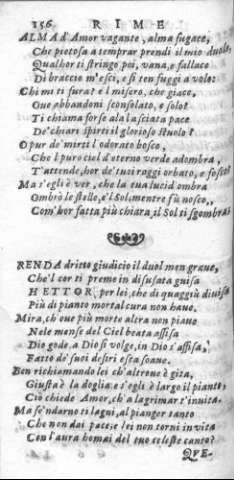 156 RIME
ALMA d'Amor vagante, alma fugace,
Che pietosa a temprar prendi il mio duolo
Qualhor ti stringo poi, vana, e fallace
Di braccio m'esci, e si ten fuggi a volo:
Chi mi ti fura? e'l misero, che giace,
Oue abbandoni sconsolato, e solo?
Ti chiama forse a la lasciata pace
De' chiari spirti il glorioso stuolo?
O pur de' mirti l'odorato bosco,
Che'l puro ciel d'eterno verde adombra,
T'attende, hor de' tuoi raggi orbato, e fosco?
Ma s'egli è ver, che la tua lucid ombra
Ombrò le stelle, e'l Sol, mentre fù nosco,
Com'hor fatta più chiara, il Sol ti sgombra?
RENDA dritto giudicio il duol men graue,
Che'l cor ti preme in disusata guisa
HETTOR, per lei, che di quaggiù diuisa
Più di pianto mortal cura non haue.
Mira, ch'oue più morte altra non paue
Nele mense del Ciel beata assisa
Dio gode, a Dio si volge, in Dio s'affisa,
Fatto de' suoi desiri esca soaue.
Ben richiamando lei ch'altroue è gita,
Giusta è la doglia: e s'egli è largo il pianto,
Ciò chiede Amor, ch'a lagrimar t'inuita.
Ma se'ndarno ti lagni, al pianger tanto
Che non dai pace: e lei non torni in vita
Con l'aura homai del tuo celeste canto?
QVE-